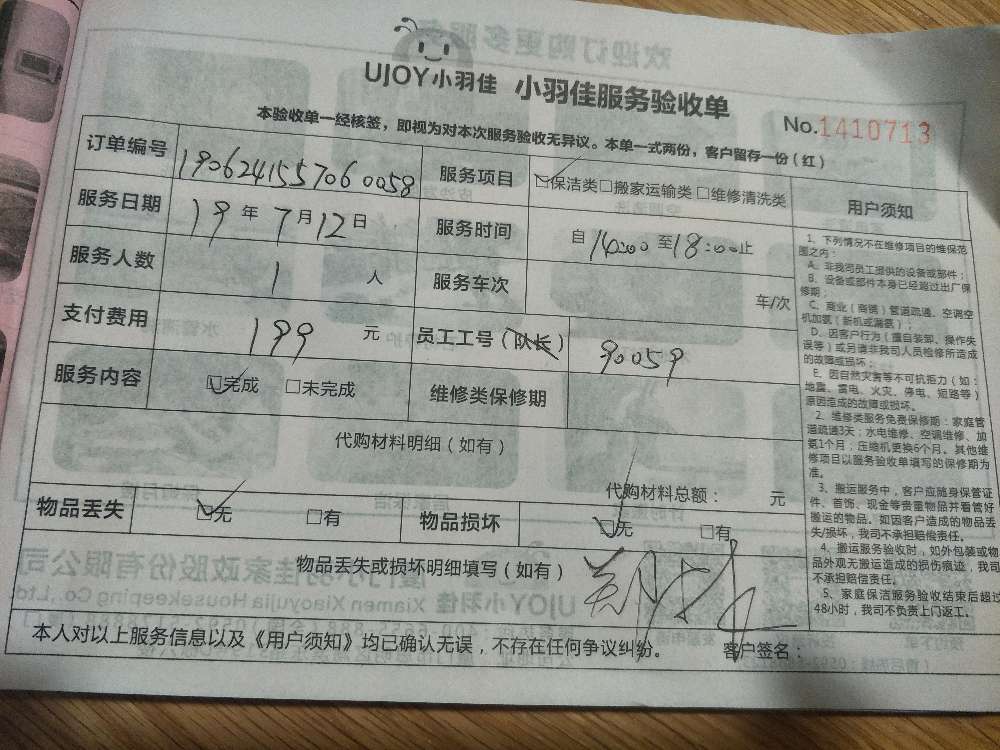 UJOY小羽佳 小羽佳服务验收单
No.1410713
本验收单一经核签，即视为对本次服务验收无异议。本单一式两份，客户留存一份（红）
订单编号 190624155706 0058 服务项目 ☑保洁类□搬家运输类 □维修清洗类
服务日期 19年7月12日 服务时间 自14:00至18:00止
服务人数 1人 服务车次 车/次
支付费用 199元 员工工号（队长） 90059
服务内容 ☑完成 □未完成 维修类保修期
代购材料明细（如有）
代购材料总额： 元
物品丢失 ☑无 □有 物品损坏 ☑无 □有
物品丢失或损坏明细填写（如有）
本人对以上服务信息以及《用户须知》均已确认无误，不存在任何争议纠纷。 客户签名：
用户须知
1、下列情况不在维修项目的维保范
围之内：
A、非我司员工提供的设备或部件；
B、设备或部件本身已经超过出厂保
修期；
C、商业（商铺）管道疏通、空调空
机加氨（新机或漏氨）；
D、因客户行为（擅自装卸、操作失
误等）或另请非我司人员检修所造成
的故障或损坏；
E、因自然灾害等不可抗拒力（如：
地震、雷电、火灾、停电、短路等）
原因造成的故障或损坏。
2、维修类服务免费保修期：家庭管
道疏通3天；水电维修、空调维修、加
氨1个月；压缩机更换6个月。其他维
修项目以服务验收单填写的保修期为
准。
3、搬运服务中，客户应随身保管证
件、首饰、现金等贵重物品并看管好
搬运的物品。如因客户造成的物品丢
失/损坏，我司不承担赔偿责任。
4、搬运服务验收时，如外包装或物
品外观无搬运造成的损伤痕迹，我司
不承担赔偿责任。
5、家庭保洁服务验收结束后超过
48小时，我司不负责上门返工。